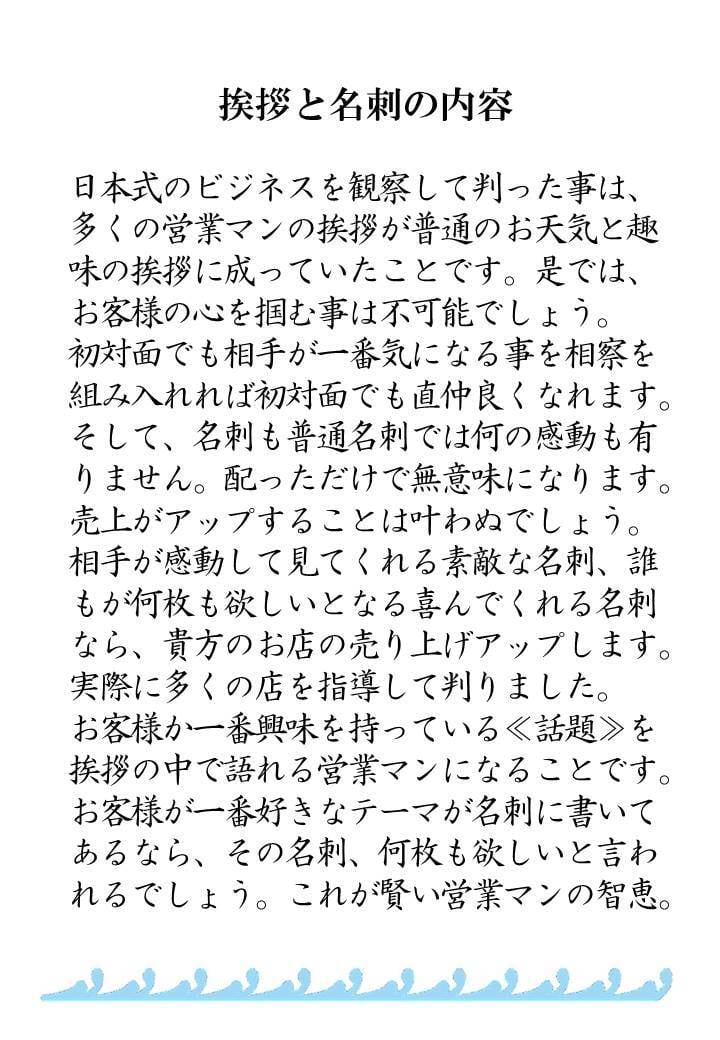 挨拶と名刺の内容
日本式のビジネスを観察して判った事は、
多くの営業マンの挨拶が普通のお天気と趣
味の挨拶に成っていたことです。是では、
お客様の心を掴む事は不可能でしょう。
初対面でも相手が一番気になる事を相察を
組み入れれば初対面でも直仲良くなれます。
そして、名刺も普通名刺では何の感動も有
りません。配っただけで無意味になります。
売上がアップすることは叶わぬでしょう。
相手が感動して見てくれる素敵な名刺、誰
もが何枚も欲しいとなる喜んでくれる名刺
なら、貴方のお店の売り上げアップします。
実際に多くの店を指導して判りました。
お客様か一番興味を持っている≪話題≫を
挨拶の中で語れる営業マンになることです。
お客様が一番好きなテーマが名刺に書いて
あるなら、その名刺、何枚も欲しいと言わ
れるでしょう。これが賢い営業マンの智恵。